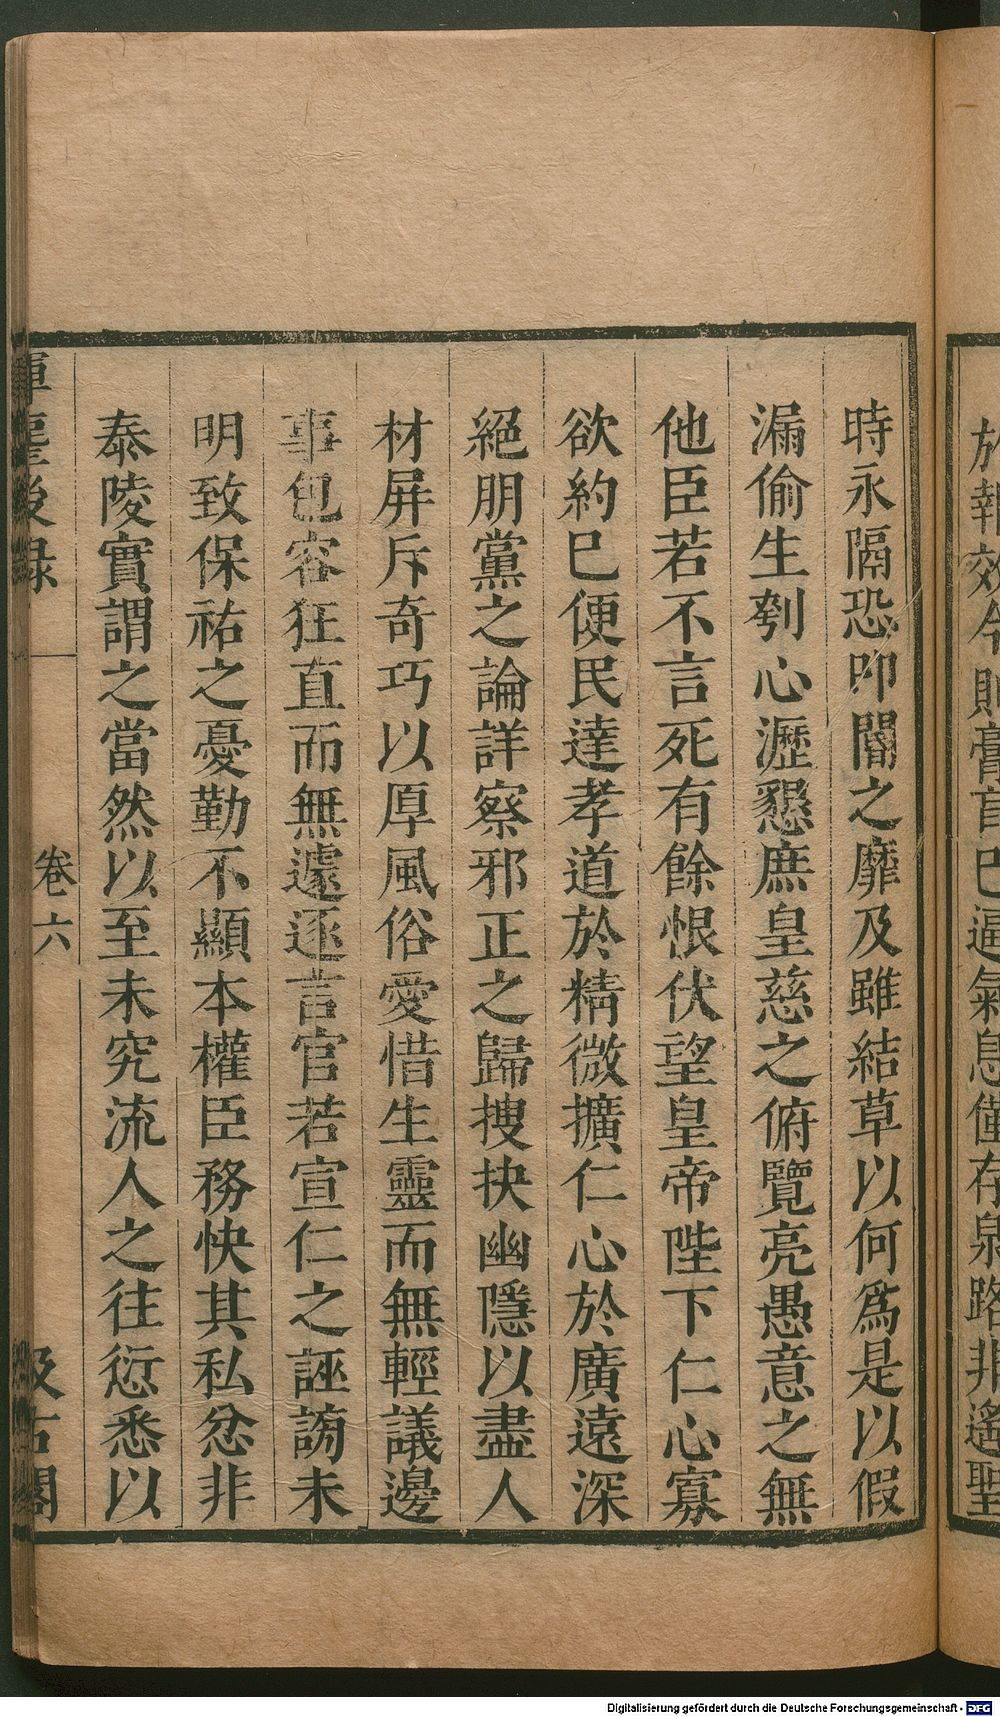 於報効今則膏肓已逼氣息僅存泉路非遙聖
時永隔恐叩閽之靡及雖結草以何爲是以假
漏偷生刳心瀝懇庶皇慈之俯覽亮愚意之無
他臣若不言死有餘恨伏望皇帝陛下仁心寡
欲約已便民達孝道於精微擴仁心於廣遠深
絕朋黨之論詳察邪正之歸搜抉幽隱以盡人
材屏斥奇巧以厚風俗愛惜生靈而無輕議邊
事包容狂直而無遽逐言官若宣仁之誣謗未
明致保祐之憂勤不顯本權臣務快其私忿非
泰陵實謂之當然以至未究流人之往愆悉以
揮麈後録
卷六
汲古閣
Digitalisierung gefördert durch die Deutsche Forschungsgemeinschaft - DFG